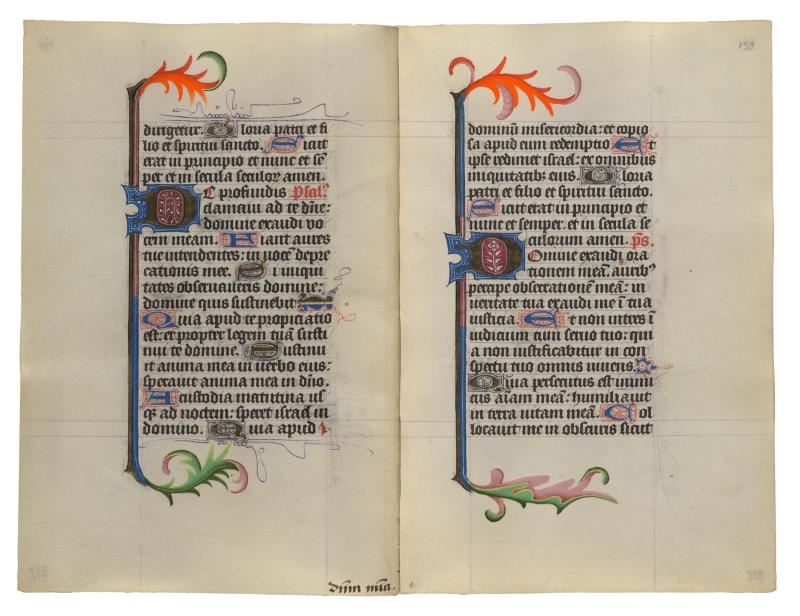 dirigetur. Gloria patri et fi
lio et spiritui sancto. Sicut
erat in principio et nunc et sē
per et in secula seculoꝝ amen.
De profundis Psal.
clamaui ad te dn̄e:
domine exaudi vo
cem meam. Fiant aures
tue intendentes: in vocē depre
cationis mee. Si iniqui
tates obseruaueris domine:
domine quis sustinebit
Quia apud te propiciatio
est: et propter legem tuā susti
nui te domine. Sustinu
it anima mea in verbo eius:
sperauit anima mea in dn̄o.
A custodia matutina us
qꝫ ad noctem: speret israel in
domino. Quia apud
dūm mīa.
159
dominū misericordia: et copio
sa apud eum redemptio Et
ipse redimet israel: ex omnibus
iniquitatibꝫ eius. Gloria
patri et filio et spiritui sancto.
Sicut erat in principio et
nunc et semper. et in secula se
culorum amen. p̄s.
Domine exaudi ora
tionem meā: auribꝰ
percipe obsecrationē meā: in
ueritate tua exaudi me ī tua
iusticia. Et non intres ī
iudicium cum seruo tuo: qui
a non iustificabitur in con
spectu tuo omnis uiuens.
Quia persecutus est inimi
cus aīam meā: humiliauit
in terra uitam meā. Col
locauit me in obscuris sicut